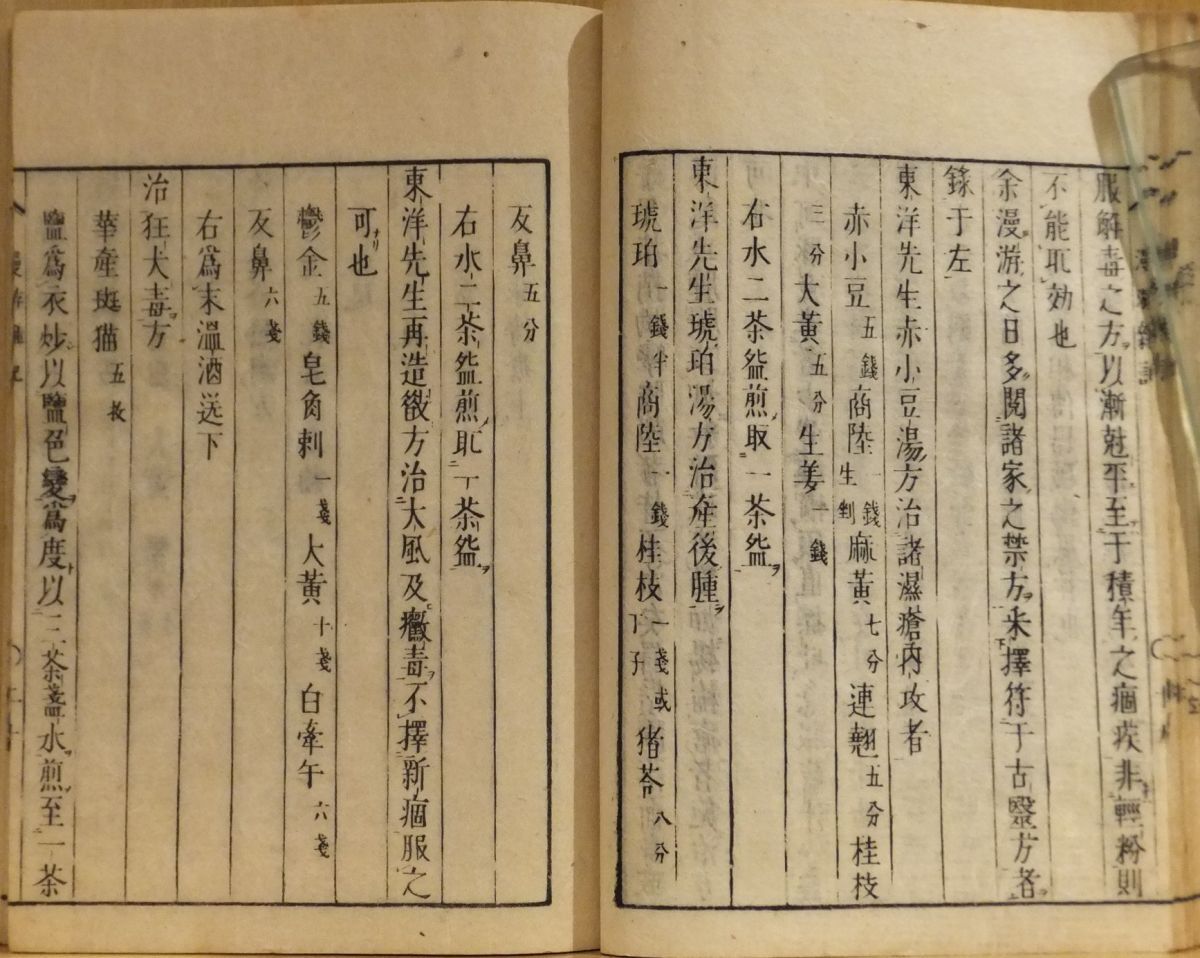 服解毒之方以漸尅平至于積年之痼疾非輕粉則
不能取効也
余漫游之日多閲諸家之禁方采擇符于古醫方者
錄于左
東洋先生赤小豆湯方治諸濕瘡內攻者
赤小豆五錢商陸一錢生剉麻黃七分連翹五分桂枝
三分大黃五分生姜一錢
右水二茶盌煎取一茶盌
東洋先生琥珀湯方治產後腫
琥珀一錢半商陸一錢桂枝一戔或猪苓八分
反鼻五分
右水二茶盌煎取一茶盌
東洋先生再造散方治大風及黴毒不擇新痼服之
可也
鬱金五錢皂角刺一戔大黃十戔白牽午六戔
反鼻六戔
右爲末溫酒送下
治狂犬毒方
華產斑猫五枚
鹽爲衣炒以鹽色變爲度以三茶盞水煎至一茶